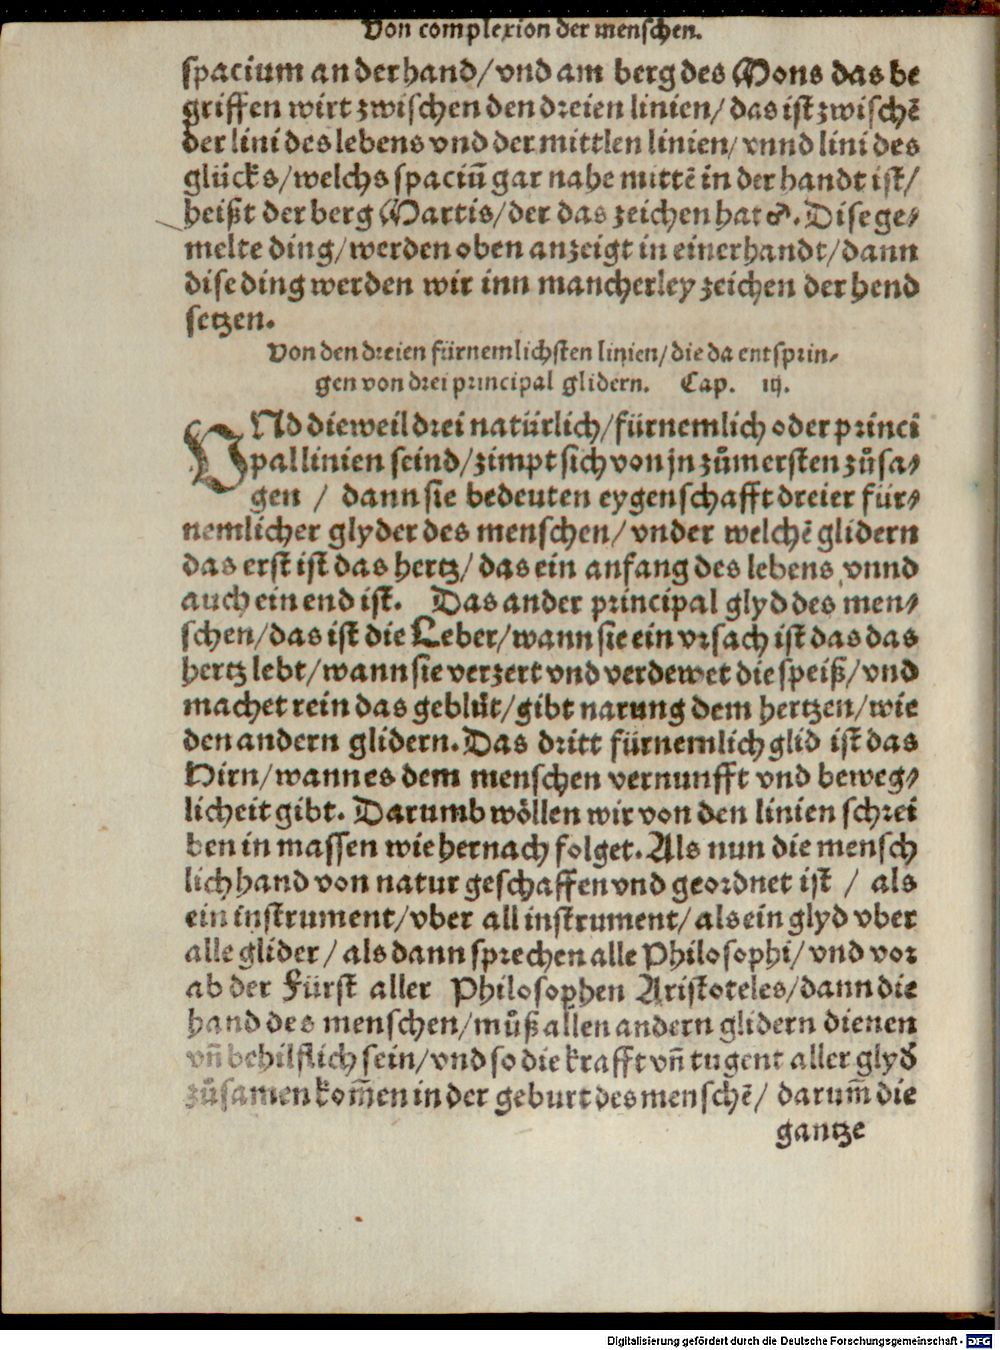 Von complexion der menschen.
spacium an der hand/ vnd am berg des Mons das be
griffen wirt zwischen den dreien linien/ das ist zwischē
der lini des lebens vnd der mittlen linien/ vnnd lini des
glücks/ welchs spaciū gar nahe mittē in der handt ist/
heißt der berg Martis/ der das zeichen hat ♂. Dise ge⸗
melte ding/ werden oben anzeigt in einer handt/ dann
dise ding werden wir inn mancherley zeichen der hend
setzen.
Von den dreien fürnemlichsten linien/ die da entsprin⸗
gen von drei principal glidern. Cap. iij.
VNd dieweil drei natürlich/ fürnemlich oder princi
pal linien seind/ zimpt sich von jn zům ersten zůsa⸗
gen / dann sie bedeuten eygenschafft dreier für⸗
nemlicher glyder des menschen/ vnder welchē glidern
das erst ist das hertz/ das ein anfang des lebens vnnd
auch ein end ist. Das ander principal glyd des men⸗
schen/ das ist die Leber/ wann sie ein vrsach ist das das
hertz lebt/ wann sie verzert vnd verdewet die speiß/ vnd
machet rein das geblüt/ gibt narung dem hertzen/ wie
den andern glidern. Das dritt fürnemlich glid ist das
Hirn/ wann es dem menschen vernunfft vnd beweg⸗
licheit gibt. Darumb wöllen wir von den linien schrei
ben in massen wie hernach folget. Als nun die mensch
lich hand von natur geschaffen vnd geordnet ist / als
ein instrument/ vber all instrument/ als ein glyd vber
alle glider/ als dann sprechen alle Philosophi/ vnd vor
ab der Fürst aller Philosophen Aristoteles/ dann die
hand des menschen/ můß allen andern glidern dienen
vn̄ behilflich sein/ vnd so die krafft vn̄ tugent aller glyd
zůsamen kom̄en in der geburt des menschē/ darum̄ die
gantze
Digitalisierung gefördert durch die Deutsche Forschungsgemeinschaft - DFG